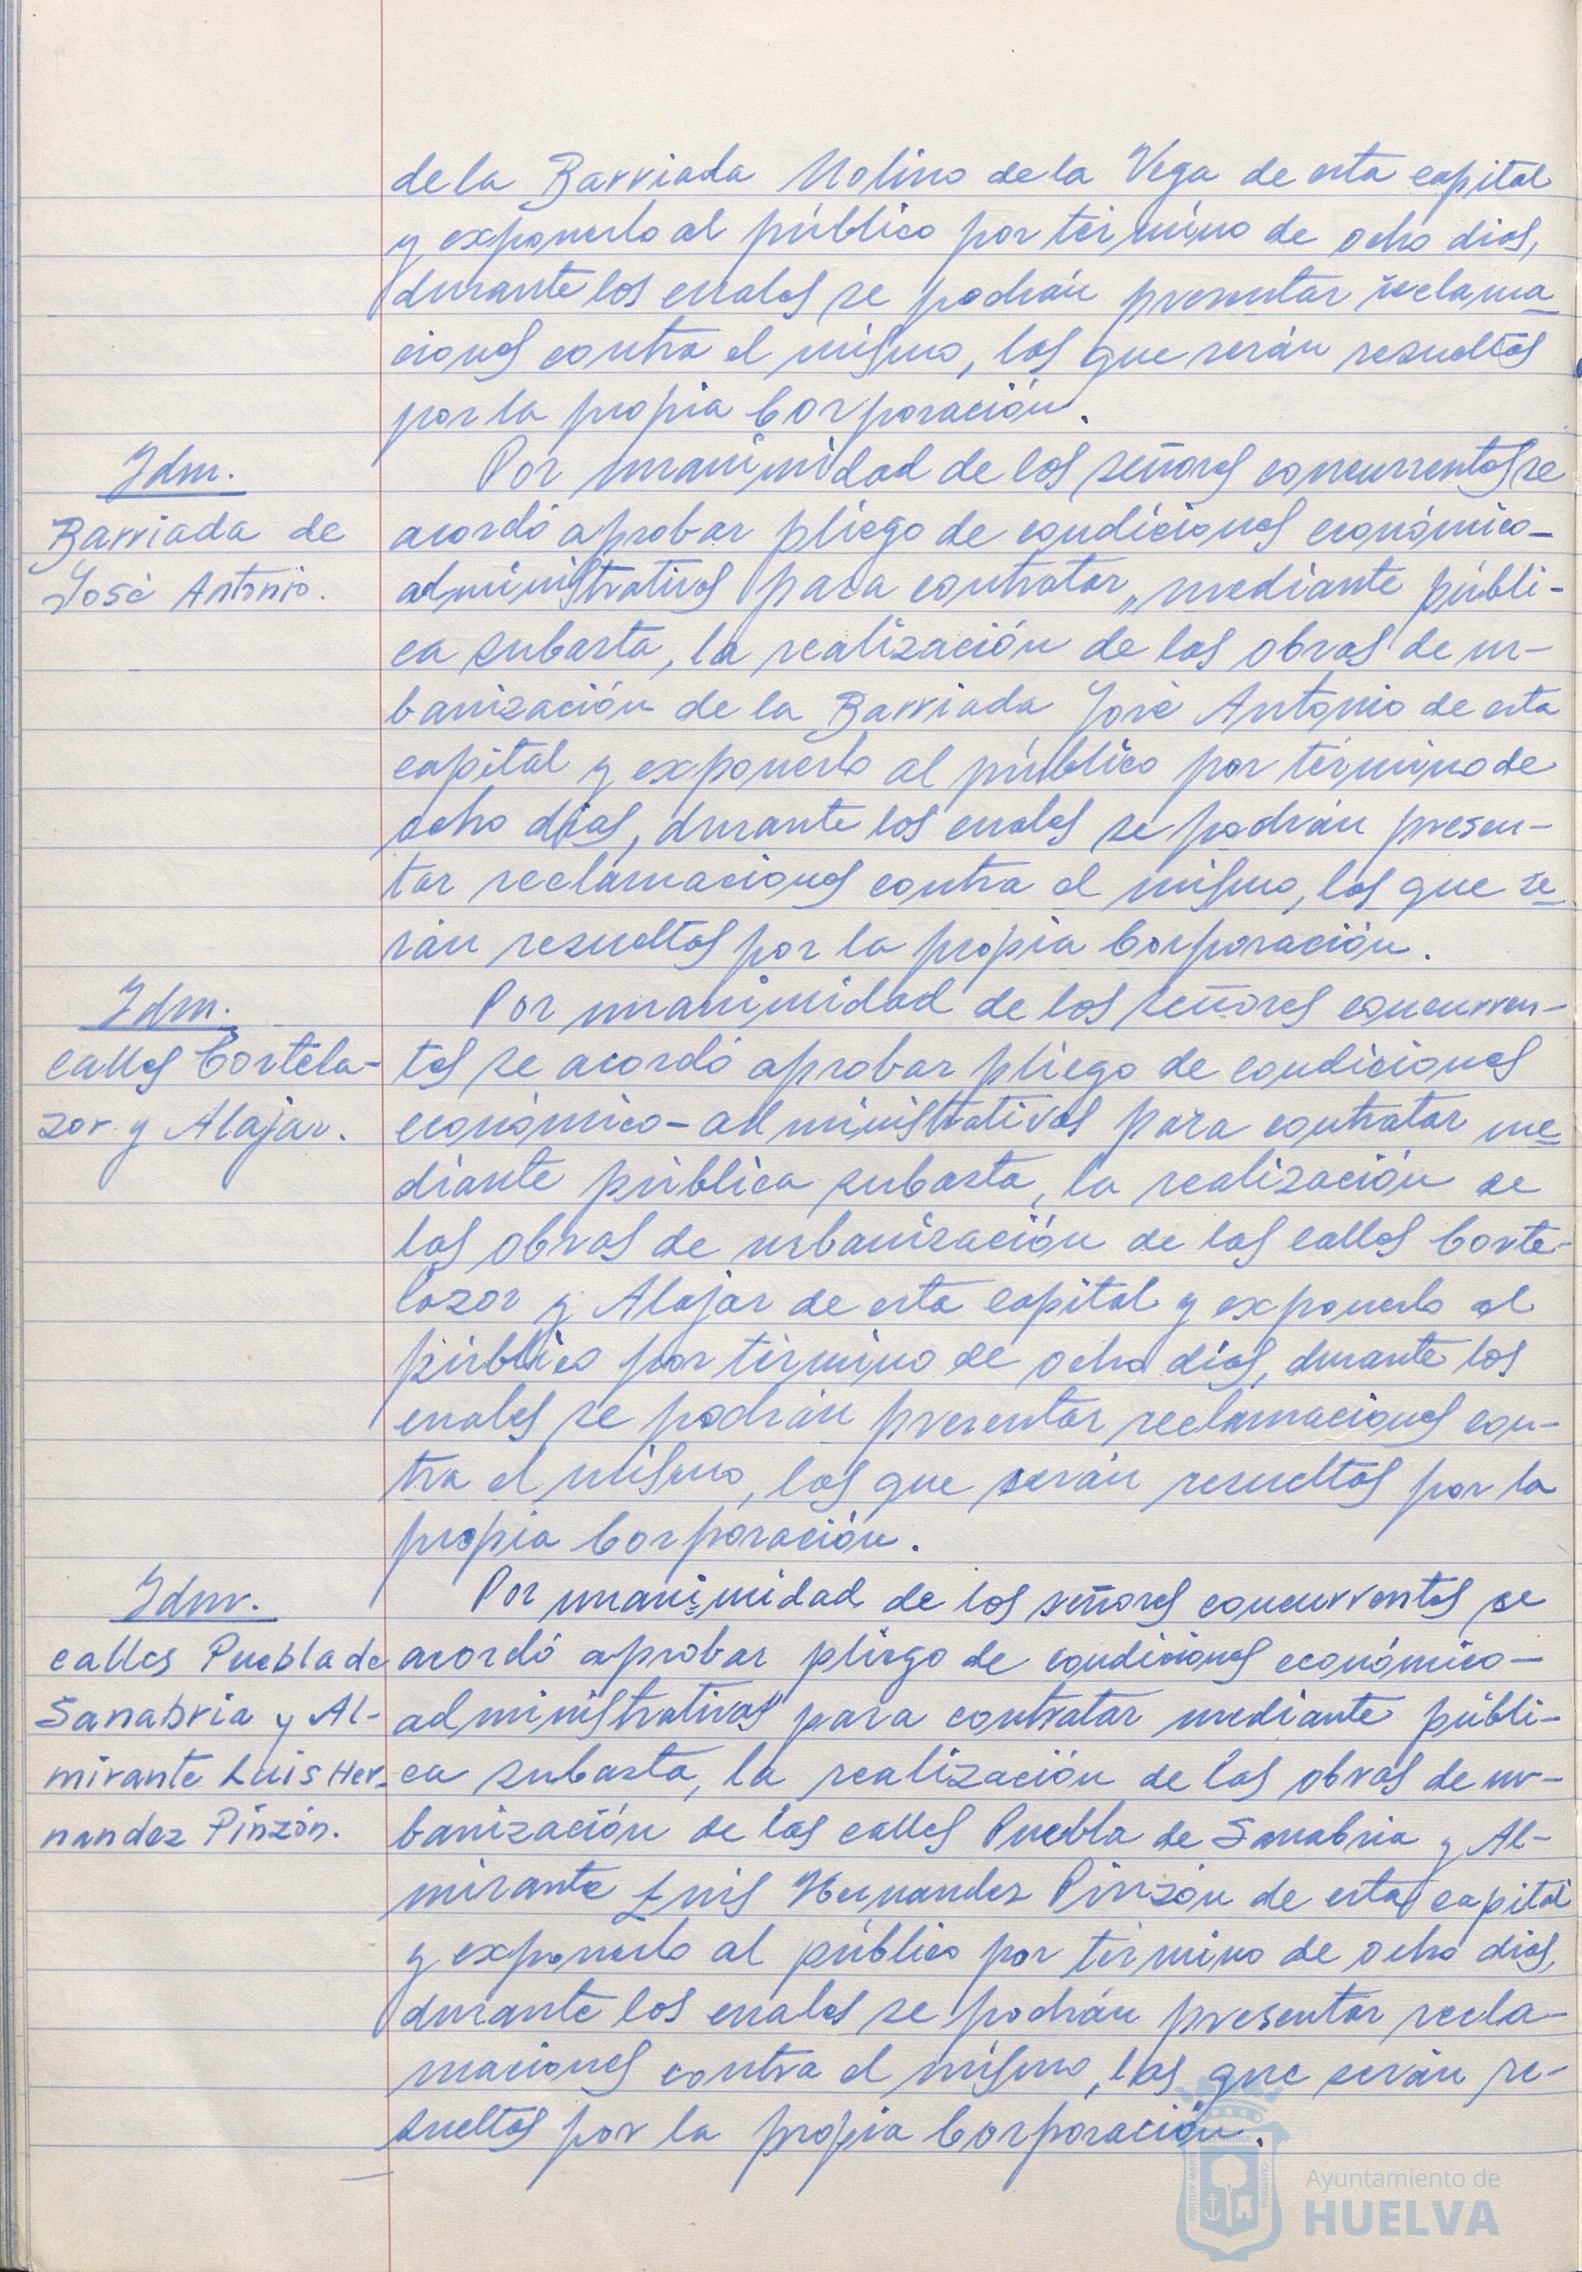 de la Barriada Molino de la Vega de esta capital
y exponerlo al público por término de ocho dias,
durante los cuales se podrán presentar reclama-
ciones contra el mismo, las que serán resueltas
por la propia Corporación.
Idm.
Barriada de
José Antonio.
Por unanimidad de los señores concurrentes se
acordó aprobar pliego de condiciones económico-
administrativas para contratar, mediante públi-
ca subasta, la realización de las obras de ur-
banización de la Barriada José Antonio de esta
capital y exponerlo al público por término de
ocho dias, durante los cuales se podrán presen-
tar reclamaciones contra el mismo, las que se-
rán resueltas por la propia Corporación.
Idm.
calles Cortela-
zor y Alajar.
Por unanimidad de los señores concurren-
tes se acordó aprobar pliego de condiciones
económico-administrativas para contratar me-
diante pública subasta, la realización de
las obras de urbanización de las calles Corte-
lazor y Alajar de esta capital y exponerlo al
público por término de ocho dias, durante los
cuales se podrán presentar reclamaciones con-
tra el mismo, las que serán resueltas por la
propia Corporación.
Idm.
calles Puebla de
Sanabria y Al-
mirante Luis Her-
nandez Pinzón.
Por unanimidad de los señores concurrentes se
acordó aprobar pliego de condiciones económico-
administrativas para contratar mediante públi-
ca subasta, la realización de las obras de ur-
banización de las calles Puebla de Sanabria y Al-
mirante Luis Hernandez Pinzón de esta capital
y exponerlo al público por término de ocho dias,
durante los cuales se podrán presentar recla-
maciones contra el mismo, las que serán re-
sueltas por la propia Corporación.
PORTUS MARIS
CUSTODIA
Ayuntamiento de
HUELVA